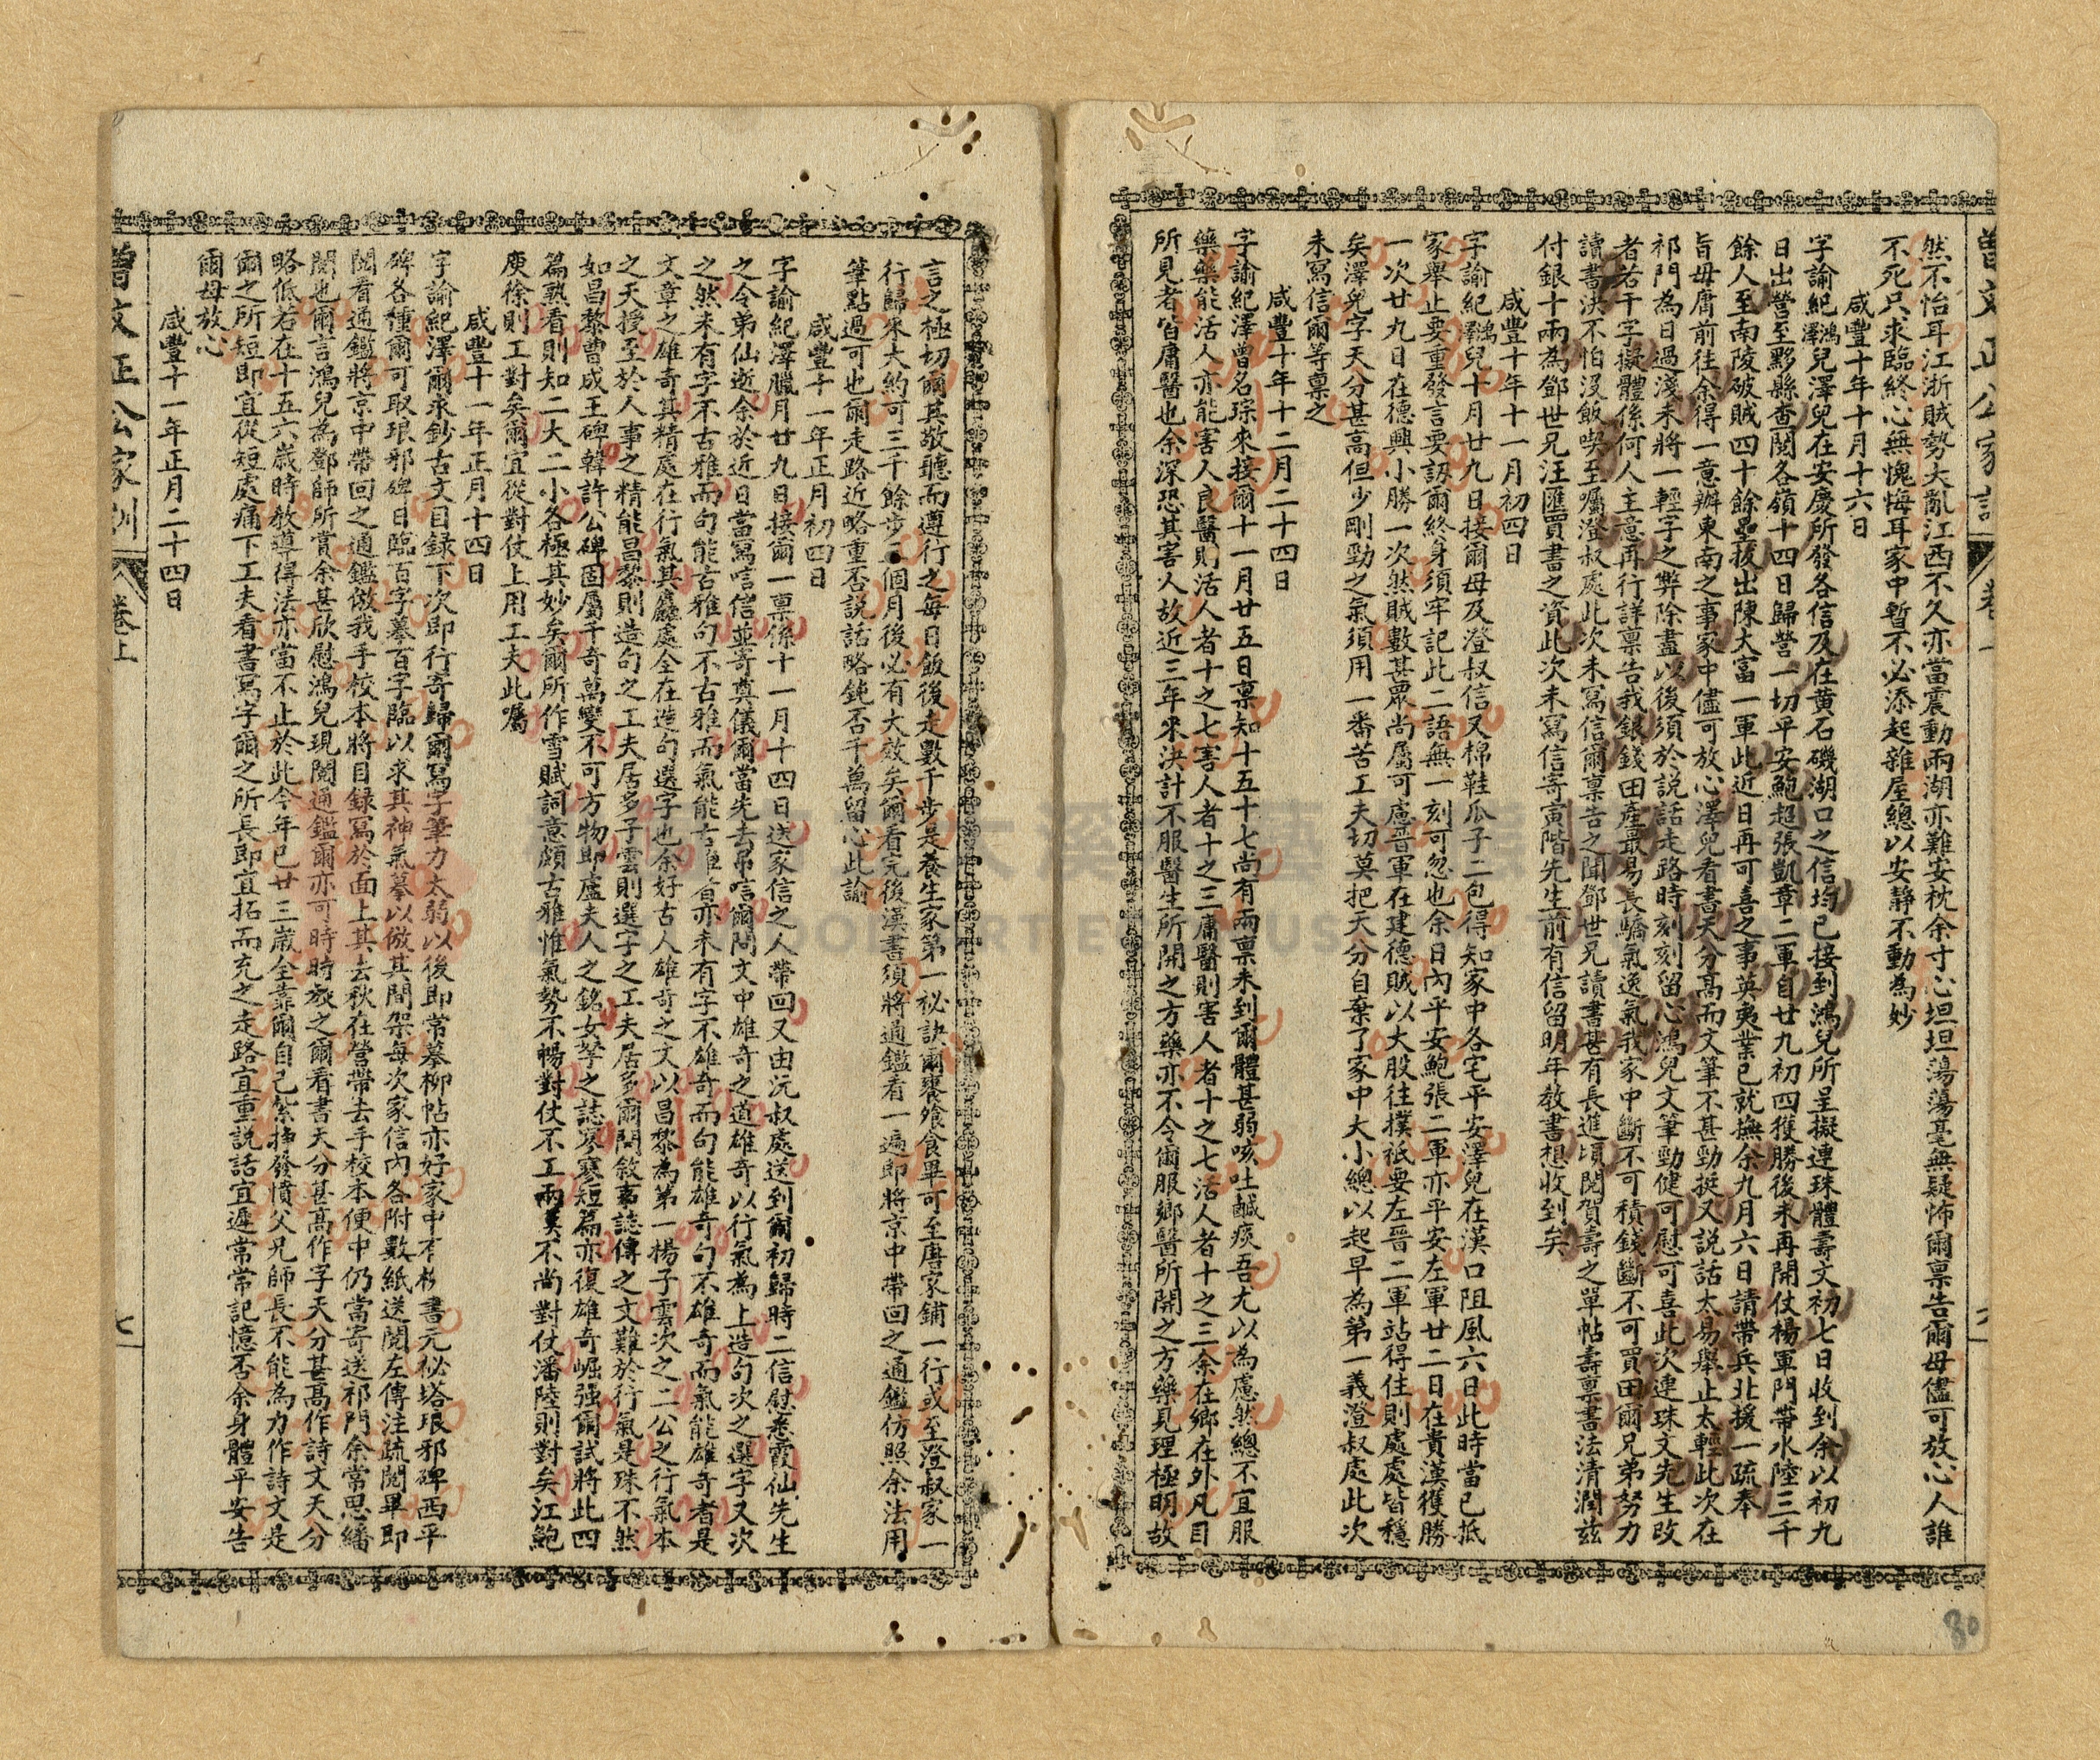 曾文正公家訓
卷上
然不怡耳江浙賊勢大亂江西不久亦當震動兩湖亦難安枕余寸心坦坦蕩蕩毫無疑怖爾稟告爾母儘可放心人誰
不死只求臨終心無愧悔耳家中暫不必添起雜屋總以安靜不動為妙
咸豐十年十月十六日
字諭紀鴻澤兒澤兒在安慶所發各信及在黃石磯湖口之信均已接到鴻兒所呈擬連珠體壽文初七日收到余以初九
日出營至黟縣查閱各嶺十四日歸營一切平安鮑超張凱章二軍自廿九初四獲勝後未再開仗楊軍門帶水陸三千
餘人至南陵破賊四十餘壘拔出陳大富一軍此近日再可喜之事英夷業已就撫余九月六日請帶兵北援一疏奉
旨毋庸前往余得一意辦東南之事家中儘可放心澤兒看書天分高而文筆不甚勁挺又說話太易舉止太輕此次在
祁門為日過淺未將一輕字之弊除盡以後須於說話走路時刻刻留心鴻兒文筆勁健可慰可喜此次連珠文先生改
者若干字擬體係何人主意再行詳稟告我銀錢田產最易長驕氣逸氣我家中斷不可積錢斷不可買田爾兄弟努力
讀書決不怕沒飯喫至囑澄叔處此次未寫信爾稟告之聞鄧世兄讀書甚有長進頃閱賀壽之單帖壽稟書法清潤茲
付銀十兩為鄧世兄汪匯買書之資此次未寫信寄寅階先生前有信留明年教書想收到矣
咸豐十年十一月初四日
字諭紀鴻澤兒十月廿九日接爾母及澄叔信又棉鞋瓜子二包得知家中各宅平安澤兒在漢口阻風六日此時當已抵
家舉止要重發言要訒爾終身須牢記此二語無一刻可忽也余日內平安鮑張二軍亦平安左軍廿二日在貴溪獲勝
一次廿九日在德興小勝一次然賊數甚眾尚屬可慮普軍在建德賊以大股往撲祇要左普二軍站得住則處處皆穩
矣澤兒字天分甚高但少剛勁之氣須用一番苦工夫切莫把天分自棄了家中大小總以起早為第一義澄叔處此次
未寫信爾等稟之
咸豐十年十二月二十四日
字諭紀澤曾名琮來接爾十一月廿五日稟知十五十七尚有兩稟未到爾體甚弱咳吐鹹痰吾尤以為慮然總不宜服
藥藥能活人亦能害人良醫則活人者十之七害人者十之三庸醫則害人者十之七活人者十之三余在鄉在外凡目
所見者皆庸醫也余深恐其害人故近三年來決計不服醫生所開之方藥亦不令爾服鄉醫所開之方藥見理極明故
言之極切爾其敬聽而遵行之每日飯後走數千步是養生家第一祕訣爾饔飧食畢可至唐家鋪一行或至澄叔家一
行歸來大約可三千餘步三個月後必有大效矣爾看完後漢書須將通鑑看一遍即將京中帶回之通鑑仿照余法用
筆點過可也爾走路近略重否說話略鈍否千萬留心此諭
咸豐十一年正月初四日
字諭紀澤臘月廿九日接爾一稟係十一月十四日送家信之人帶回又由沅叔處送到爾初歸時二信慰悉霞仙先生
之令弟仙逝余於近日當寫唁信並寄奠儀爾當先去弔唁爾問文中雄奇之道雄奇以行氣為上造句次之選字又次
之然未有字不古雅而句能古雅句不古雅而氣能古雅者亦未有字不雄奇而句能雄奇句不雄奇而氣能雄奇者是
文章之雄奇其精處在行氣其麤處全在造句選字也余好古人雄奇之文以昌黎為第一楊子雲次之二公之行氣本
之天授至於人事之精能昌黎則造句之工夫居多子雲則選字之工夫居多爾問敘事誌傳之文難於行氣是殊不然
如昌黎曹成王碑韓許公碑固屬千奇萬變不可方物即盧夫人之銘女挐之誌寥寥短篇亦復雄奇崛強爾試將此四
篇熟看則知二大二小各極其妙矣爾所作雪賦詞意頗古雅惟氣勢不暢對仗不工兩漢不尚對仗潘陸則對矣江鮑
庾徐則工對矣爾宜從對仗上用工夫此囑
咸豐十一年正月十四日
字諭紀澤爾求鈔古文目錄下次即行寄歸爾寫字筆力太弱以後即常摹柳帖亦好家中有柳書元祕塔琅邪碑西平
碑各種爾可取琅邪碑日臨百字摹百字臨以求其神氣摹以倣其間架每次家信內各附數紙送閱左傳注疏閱畢即
閱看通鑑將京中帶回之通鑑倣我手校本將目錄寫於面上其去秋在營帶去手校本便中仍當寄送祁門余常思繙
閱也爾言鴻兒為鄧師所賞余甚欣慰鴻兒現閱通鑑爾亦可時時教之爾看書天分甚高作字天分甚高作詩文天分
略低若在十五六歲時教導得法亦當不止於此今年已廿三歲全靠爾自己紮掙發憤父兄師長不能為力作詩文是
爾之所短即宜從短處痛下工夫看書寫字爾之所長即宜拓而充之走路宜重說話宜遲常常記憶否余身體平安告
爾母放心
咸豐十一年正月二十四日
曾文正公家訓
卷上
七
80